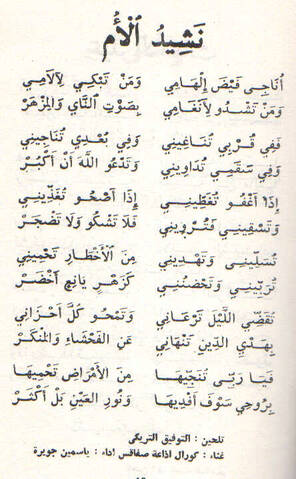 نَشِيدُ ٱلْأُم
أُنَاجِي فَيْضَ إِلْهَامِي وَمَنْ تَبْكِي لِآلَامِي
وَمَنْ تَشْدُو لِأَنْغَامِي بِصَوْتِ النَّايِ وَالْمِزْهَرْ
فَفِي قُرْبِي تُنَاغِينِي وَفِي بُعْدِي تُنَاجِينِي
وَفِي سَقَمِي تُدَاوِينِي وَتَدْعُو اللَّهَ أَنْ أَكْبُرْ
إِذَا أَغْفُو تُغَطِّينِي إِذَا أَصْحُو تُغَذِّينِي
وَتَسْقِينِي فَتُرْوِينِي فَلَا تَشْكُو وَلَا تَضْجَرْ
تُسَلِّينِي وَتَهْدِينِي مِنَ الْأَخْطَارِ تَحْمِينِي
تُرَبِّينِي وَتَحْضُنُنِي كَزَهْرٍ يَانِعٍ أَخْضَرْ
تُقَضِّي اللَّيْلَ تَرْعَانِي وَتَمْحُو كُلَّ أَحْزَانِي
بِهَدْيِ الدِّينِ تَنْهَانِي عَنِ الْفَحْشَاءِ وَالْمُنْكَرْ
فَيَا رَبِّي تُنَجِّيهَا مِنَ الْأَمْرَاضِ تَحْمِيهَا
بِرُوحِي سَوْفَ أَفْدِيهَا وَنُورِ الْعَيْنِ بَلْ أَكْثَرْ
تلحين : التوفيق التريكي
غناء : كورال اذاعة صفاقس اداء : ياسمين جويرة